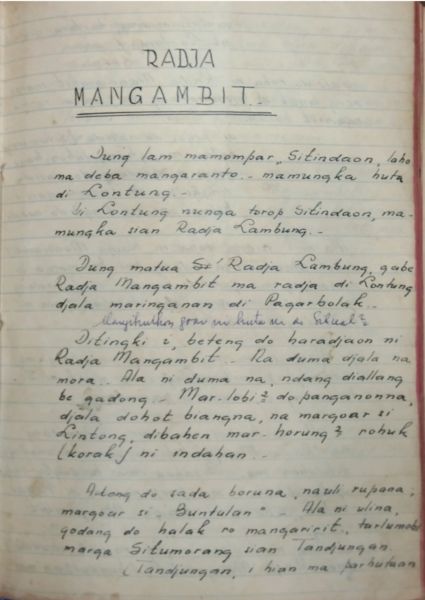 RADJA
MANGAMBIT.
Dung lam mamompar „Sitindaon, laho
ma deba mangaranto. - mamungka huta
di Lontung. -
Di Lontung nunga torop Sitindaon, ma-
mungka sian Radja Lambung. -
Dung matua Radja Lambung, gabe
Radja Mangambit ma radja di Lontung
djala maringanan di Pagarbolak. -
huta
Ditingki i, beteng do haradjaon ni
Radja Mangambit. - Na duma djala na
mora. - Ala ni duma na, ndang diallang
be gadong. - Mar-lobi² do panganonna,
djala dohot biangna, na margoar si
Lintong, dibahen mar-horung² rohuk
(korak) ni indahan. -
Adong do sada boruna, nauli rupana,
margoar si „Buntulan" - Ala ni ulina,
godang do halak ro mangaririt, tarlumobi
marga Situmorang sian Tandjungan.
(Tandjungan, i hian ma parhutaan